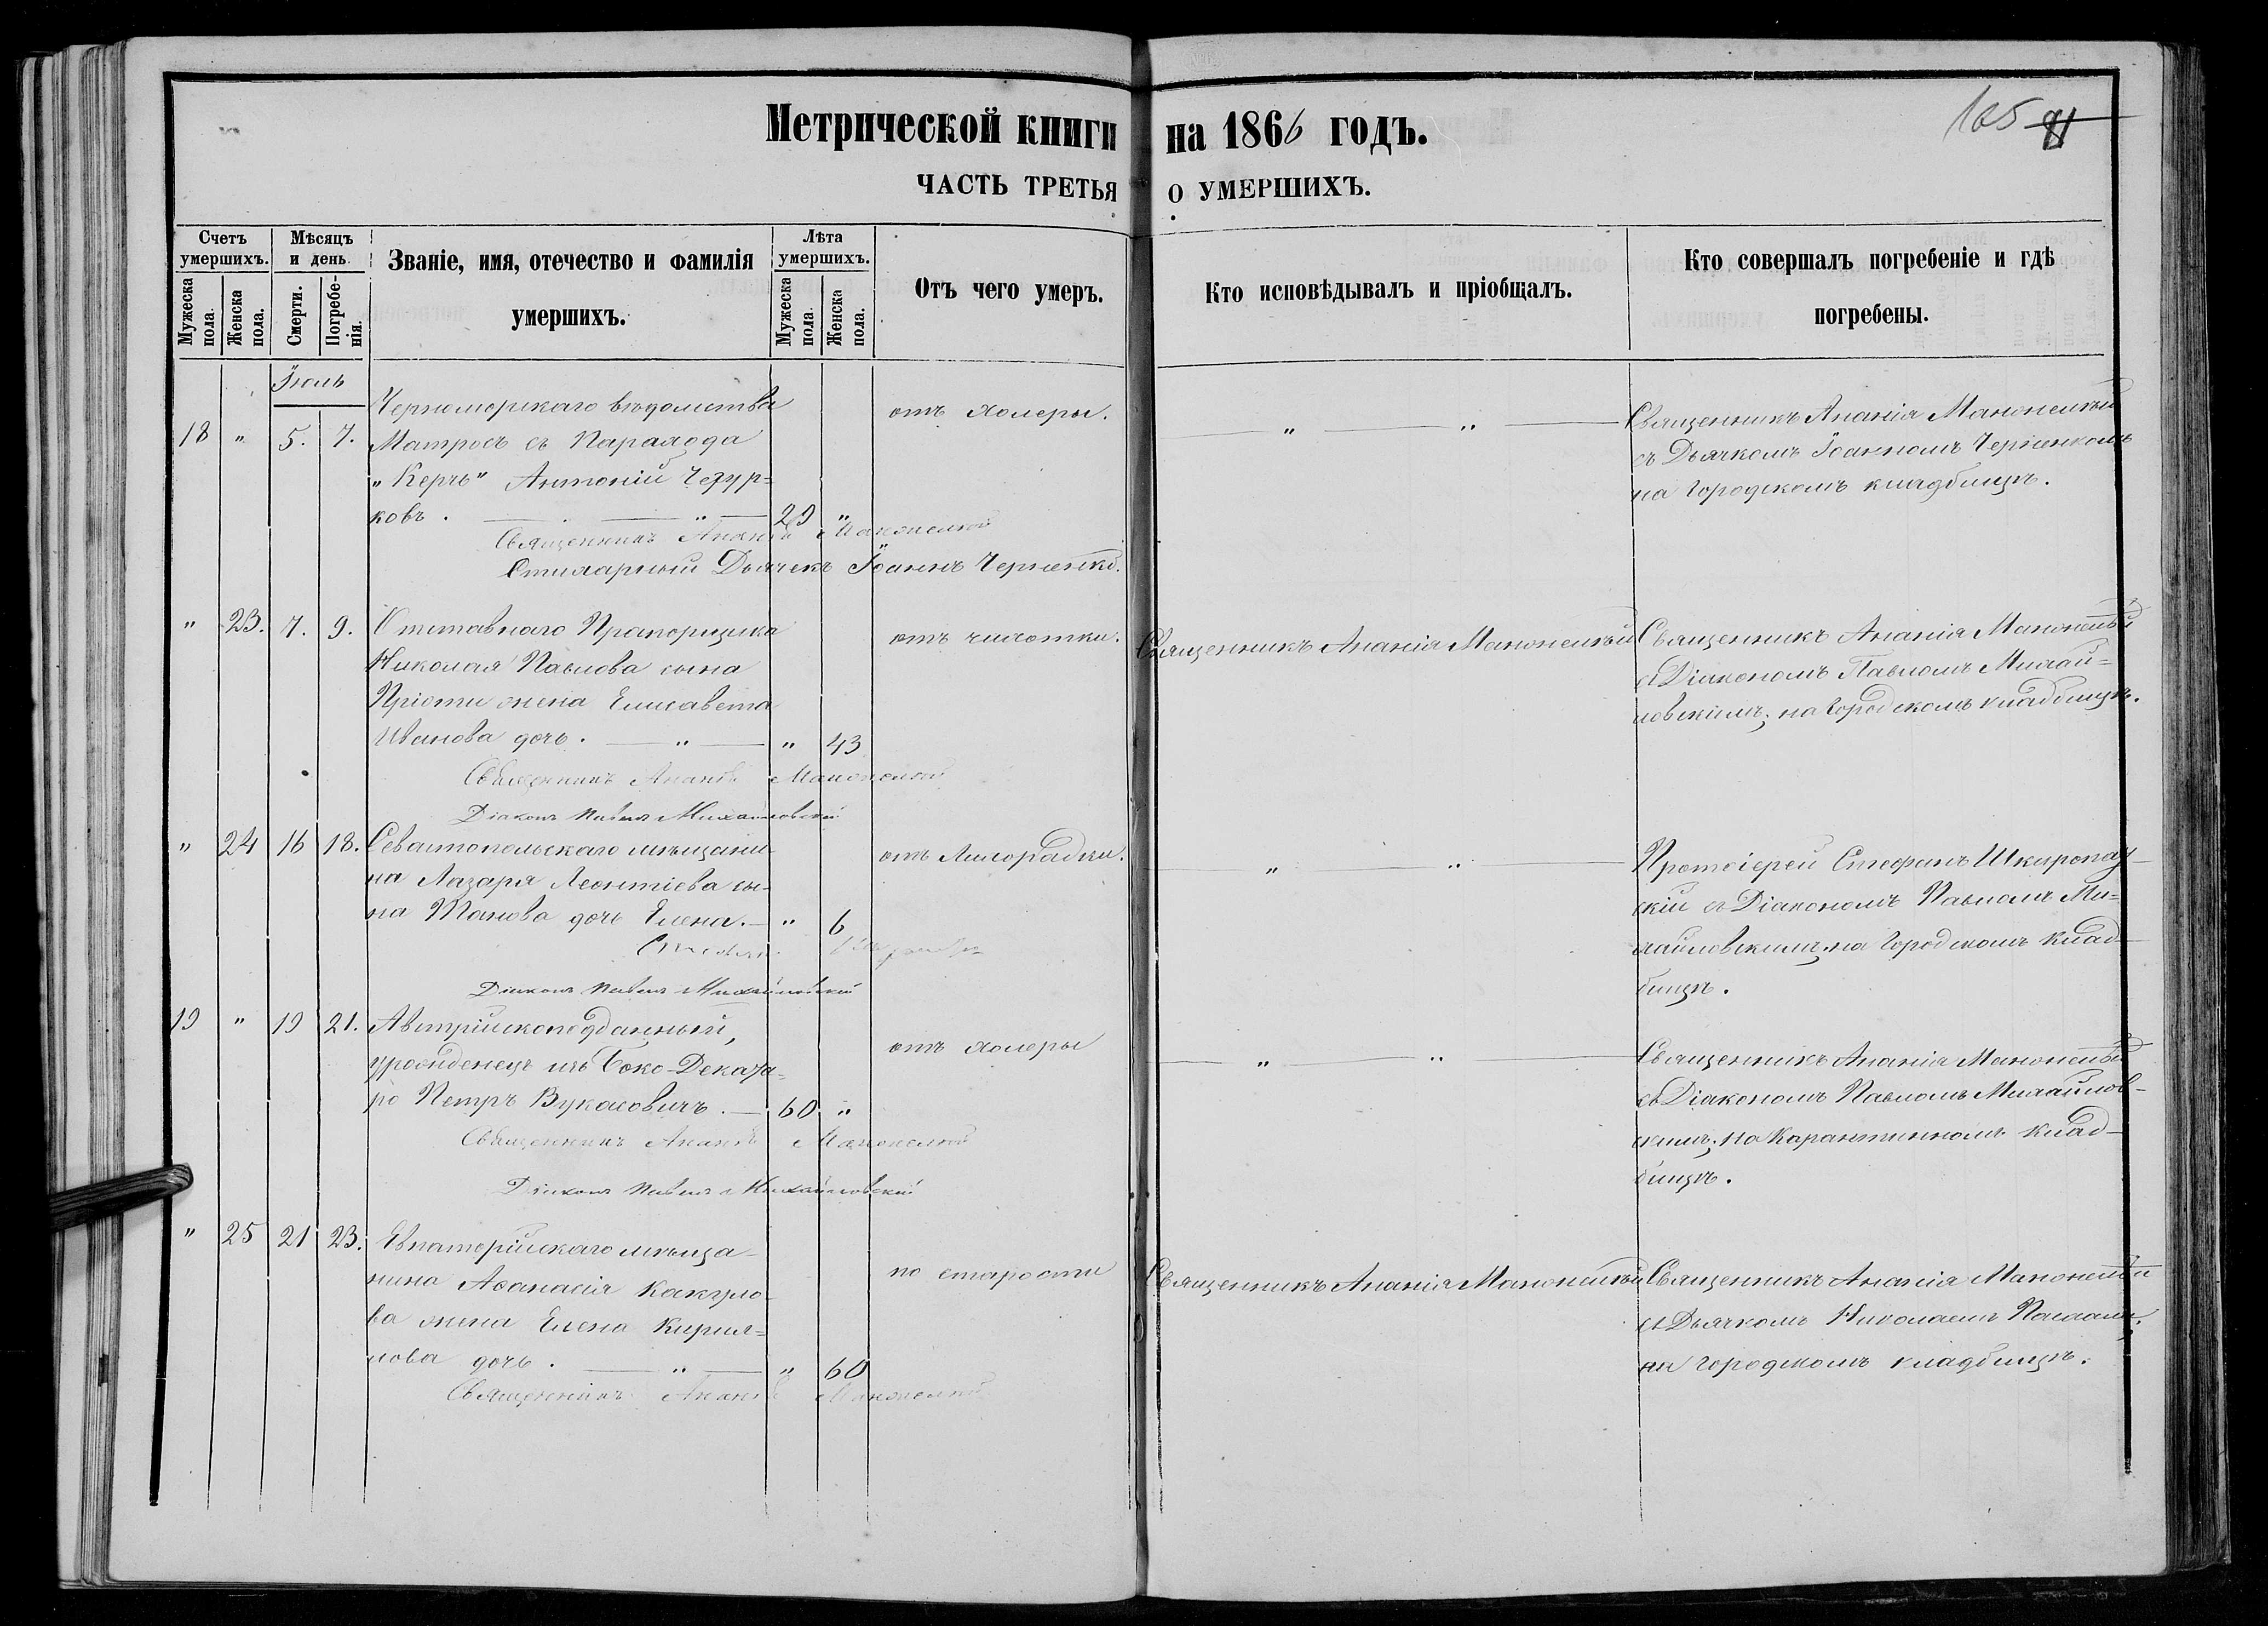 Метрической книги на 1866 годъ.
165 91
ЧАСТЬ ТРЕТЬЯ О УМЕРШИХЪ.
Счетъ умершихъ.
Мужеска пола.
Женска пола.
Мѣсяцъ и день
Смерти.
Погребе-нія.
Званіе, имя, отечество и фамилія
умершихъ.
Лѣта умершихъ.
Мужеска пола.
Женска пола.
Отъ чего умеръ.
Кто исповѣдывалъ и пріобщалъ.
Кто совершалъ погребеніе и гдѣ
погребены.
Іюль
18 " 5. 7.
Черноморскаго вѣдомства
Матросъ съ Парахода
„Керчь" Антоній Чезур=
ковъ. — " — 29 "
отъ холеры.
— " — " —
Священникъ Ананія Манонецкій
съ Дьячкомъ Іоанномъ Черненкомъ
на Городскомъ кладбищѣ.
Священникъ Ананія Манонецкій
Стихарный Дьячекъ Іоаннъ Черненко.
" 23. 7. 9.
Отставнаго Прапорщика
Николая Павлова сына
Пріоти жена Елисавета
Иванова дочь. — " — " 43
отъ чахотки.
Священникъ Ананія Манонецкій
Священникъ Ананія Манонецкій
съ Діакономъ Павломъ Михай=
ловскимъ; на Городскомъ кладбищѣ.
Священникъ Ананія Манонецкій
Діаконъ Павелъ Михайловскій
" 24 16 18.
Севастопольскаго мѣщани-
на Лазаря Леонтіева сы-
на Танова дочь Елена. — " 6
отъ Лихорадки.
" " —
Протоіерей Стефанъ
скій съ Діакономъ Павломъ Ми=
хайловскимъ, на Городскомъ клад-
бищѣ.
Діаконъ Павелъ Михайловскій
19 " 19 21.
Австрійскоподданный,
урожденецъ изъ Боко-Деката=
ро Петръ Вукасовичъ. — 60 "
отъ холеры
— " — " —
Священникъ Ананія Манонецкій
съ Діакономъ Павломъ Михайлов-
скимъ; на Карантинномъ клад-
бищѣ.
Священникъ Ананія Манонецкій
Діаконъ Павелъ Михайловскій
" 25 21 23.
Евпаторійскаго мѣща-
нина Афанасія Какуло-
ва жена Елена Кирил=
лова дочь. — " — " 60
по старости
Священникъ Ананія Манонецкій
Священникъ Ананія Манонецкій
съ Дьячкомъ Николаемъ
на Городскомъ кладбищѣ.
Священникъ Ананія Манонецкій